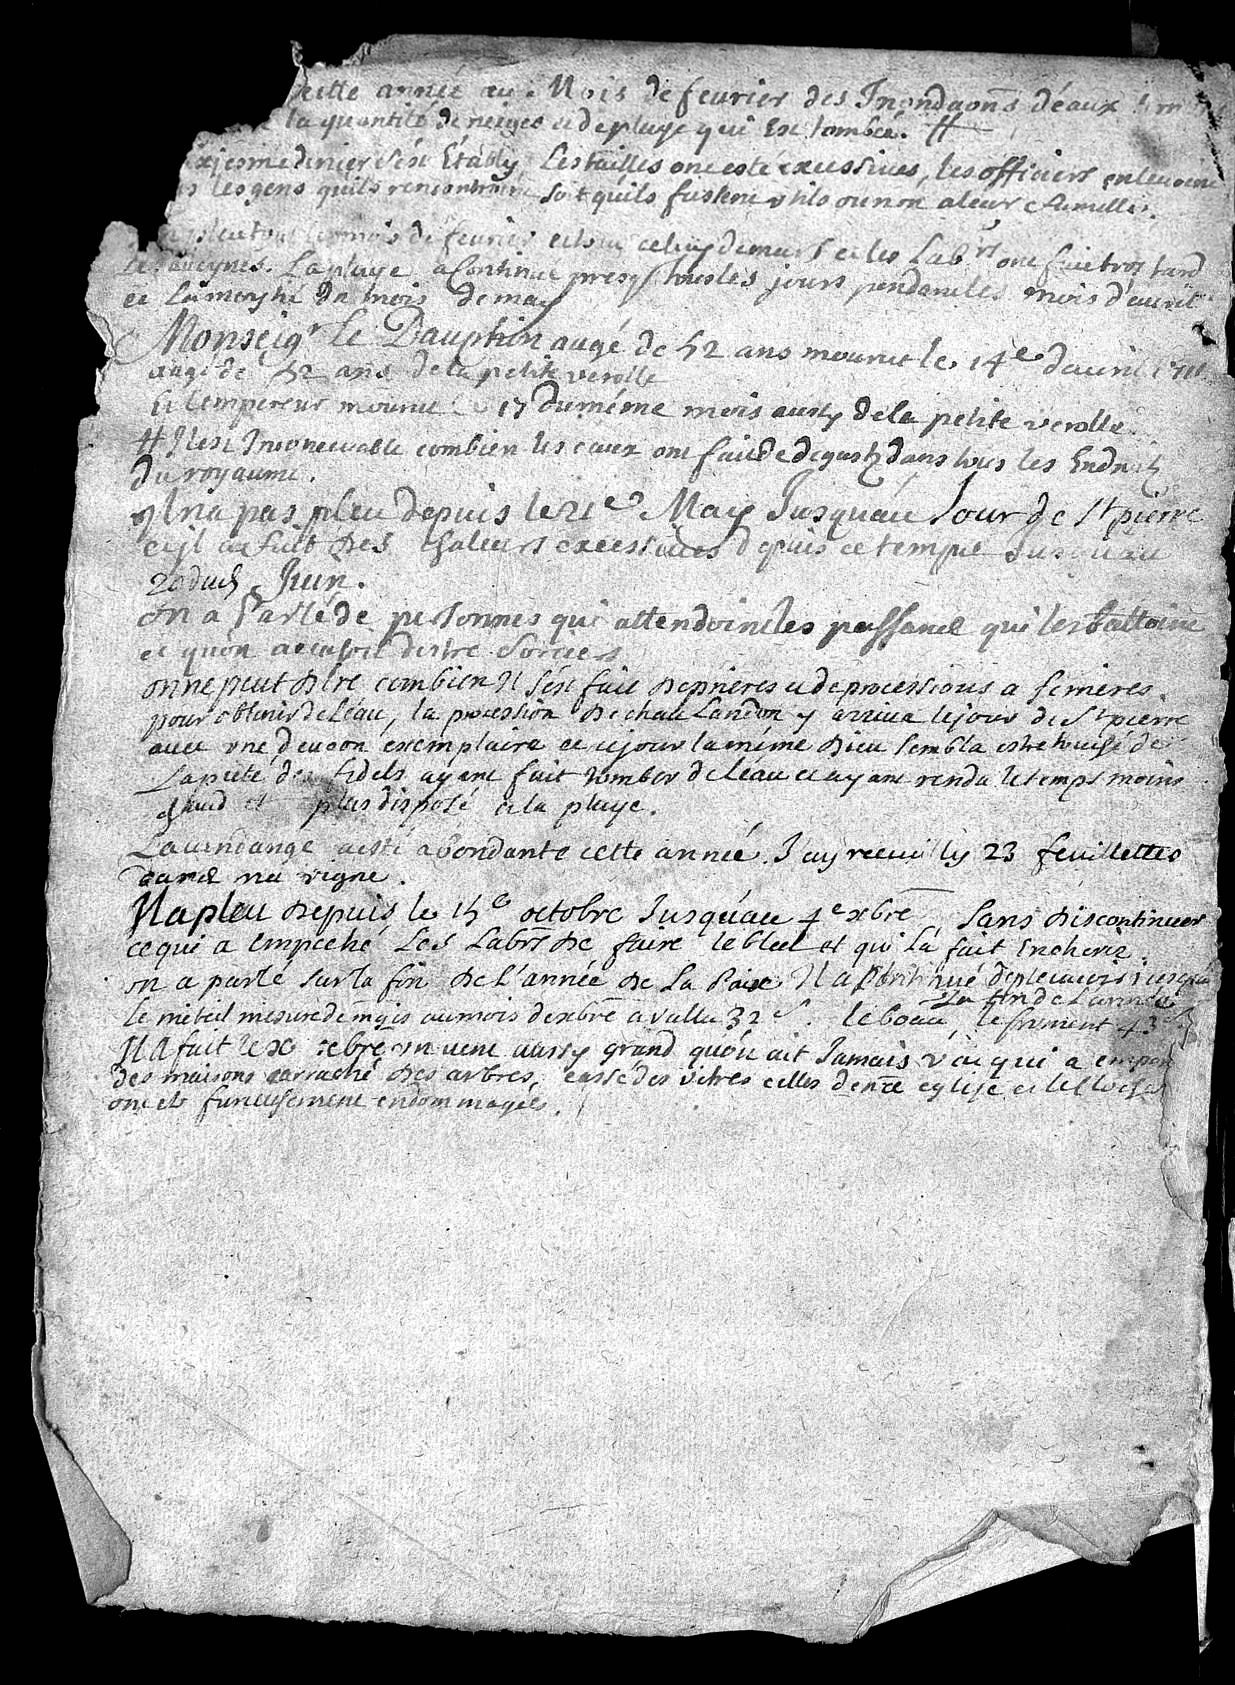 cette année au Mois de feurier des Inondaons d'eaux
la quantité de neiges et de pluye qui Est tombée. #
xiesme denier s'est Etably, Les tailles ont esté excessiues, les officiers enleuoint
les gens quils rencontroint soit quils fussent vtils ou non a leur famille.
pleu tout le mois de feurier et tout celuy de mars et les Lab.rs ont fait trop tard
Les aueynes. La pluye a Continué presq tous les jours pendant les mois d'auril
et La moytié du mois de may
Monseig.r Le Dauphin augé de 52 ans mourut le 14e d'auril 1711
augé de 52 ans de la petite verolle
Et l'empereur mourut le 17 du méme mois aussy de la petite verolle
# Il est Inconceuable combien les eaux ont fait de degasts dans tous les Endroits
du royaume.
Il n'a pas pleu depuis le 21e May Jusqu'au Jour de St pierre
et il a fait des chaleurs excessiues depuis ce temps Jusqu'au
20 dud. Juin.
on a Parlé de personnes qui attendoint les passans qui les battoint
et qu'on accusoit d'estre Sorciers
on ne peut dire combien Il s'est fait de prieres et de processions a ferrieres
pour obtenir de L'eau, la procession de chau Landon y arriua le jour de St pierre
auec vne deuoon exemplaire et ce jour la méme Dieu sembla estre touché de
La pieté des fidels ayant fait tomber de L'eau et ayant rendu le temps moins
chaud et plus disposé a la pluye.
La vendange a esté abondante cette année. J'ay recueilly 23 feuillettes
dans ma vigne.
Il a pleu depuis le 15e octobre Jusqu'au 4e xbre Sans discontinuer
ce qui a empeché Les Labrs de faire le bled et qui L'a fait Encherir.
on a parlé sur la fin de L'année de La Paix Il a Continué de pleuuoir jusqu'a
La fin de L'année
le méteil mesure de mgis au mois de xbre a vallu 32 s. le beau, le froment 43 s.
Il a fait le xe xbre vn vent aussy grand qu'on ait Jamais veu qui a emporté
des maisons earraché des arbres, cassé des vitres celles de nre eglise et
ont eté furieusement endommagées.